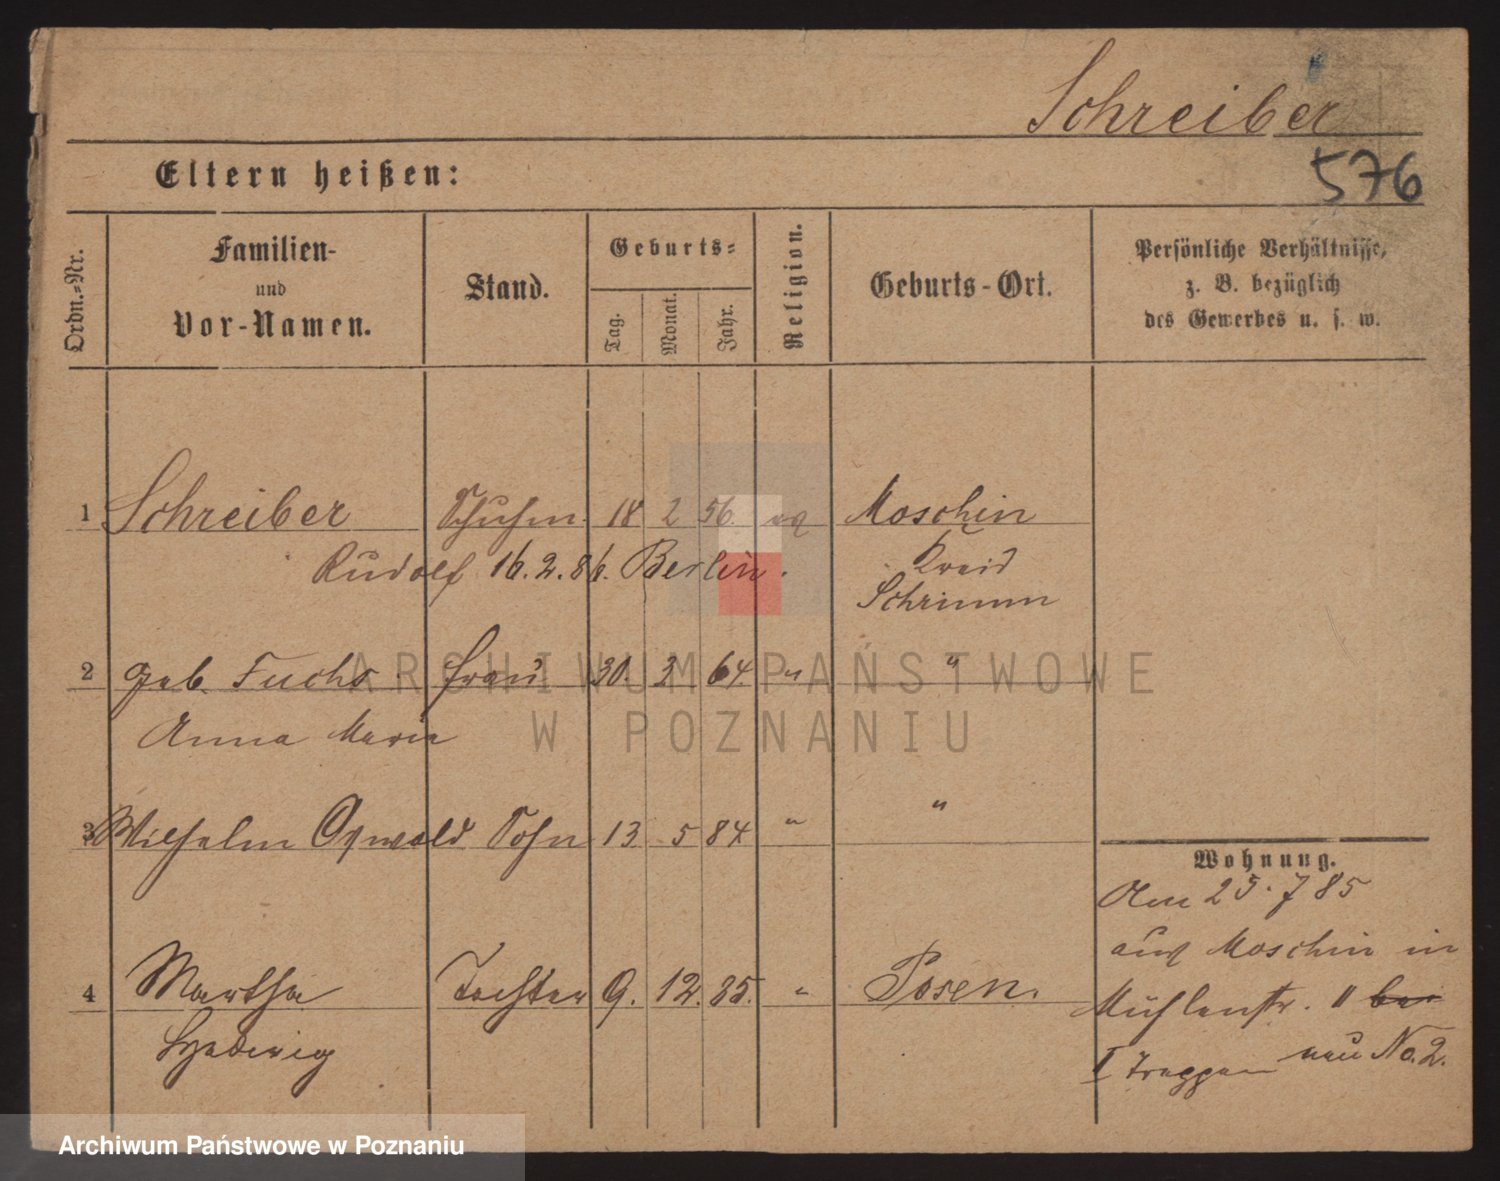 Schreiber
Eltern heißen:
576
Ordn.-Nr.
Familien-
und
Vor-Namen.
Stand.
Geburts-
Tag.
Monat.
Jahr.
Religion.
Geburts-Ort.
Persönliche Verhältnisse,
z. B. bezüglich
des Gewerbes u. s. w.
1 Schreiber Schuhm. 18 2 56. Moschin
Rudolf 16.2.86. Berlin. Kreis
Schrimm
2 geb. Fuchs Frau 30. 3 64. " "
Anna Maria
3 Wilhelm Oswald Sohn 13 5 84 " "
Wohnung.
Am 25.7 85
aus Moschin in
4 Martha Tochter 9. 12. 85. " Posen.
Mühlenstr. 11
Hedwig
I Treppen neu No. 2.
ARCHIWUM PAŃSTWOWE
W POZNANIU
Archiwum Państwowe w Poznaniu